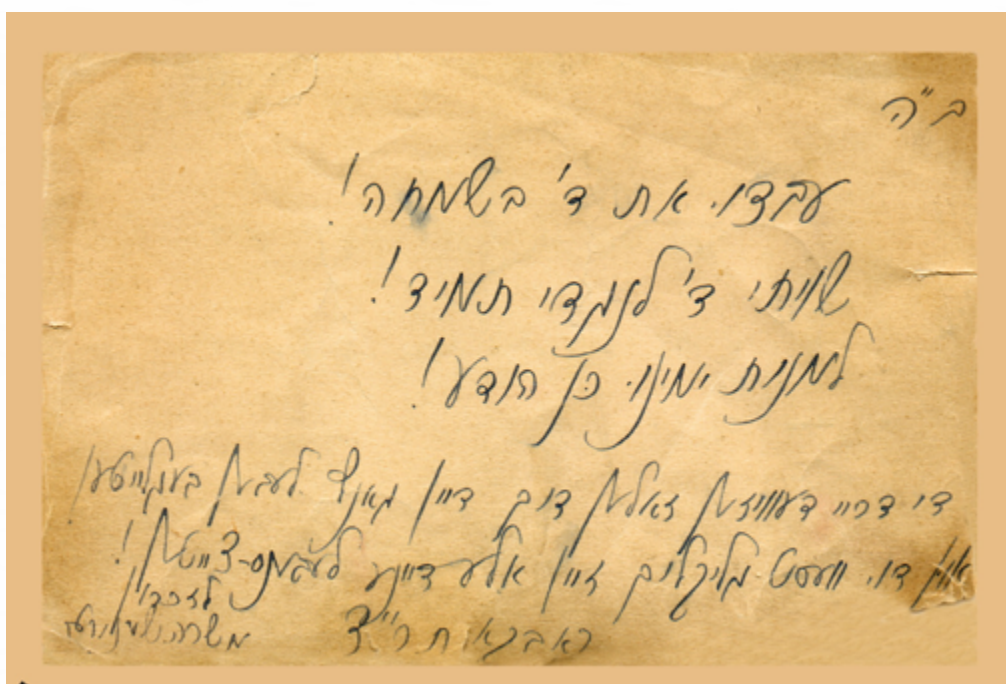 ב"ה
עבדו את ד' בשמחה!
שויתי ד' לנגדי תמיד!
למנות ימינו כן הודע!
די דריי דעוויזען זאלען דיך דיין גאנץ לעבען בעגלייטען
און דו וועסט גליקליך זיין אלע דיינע לעבענס-צייטען!
לזכרון
ח ר"צ